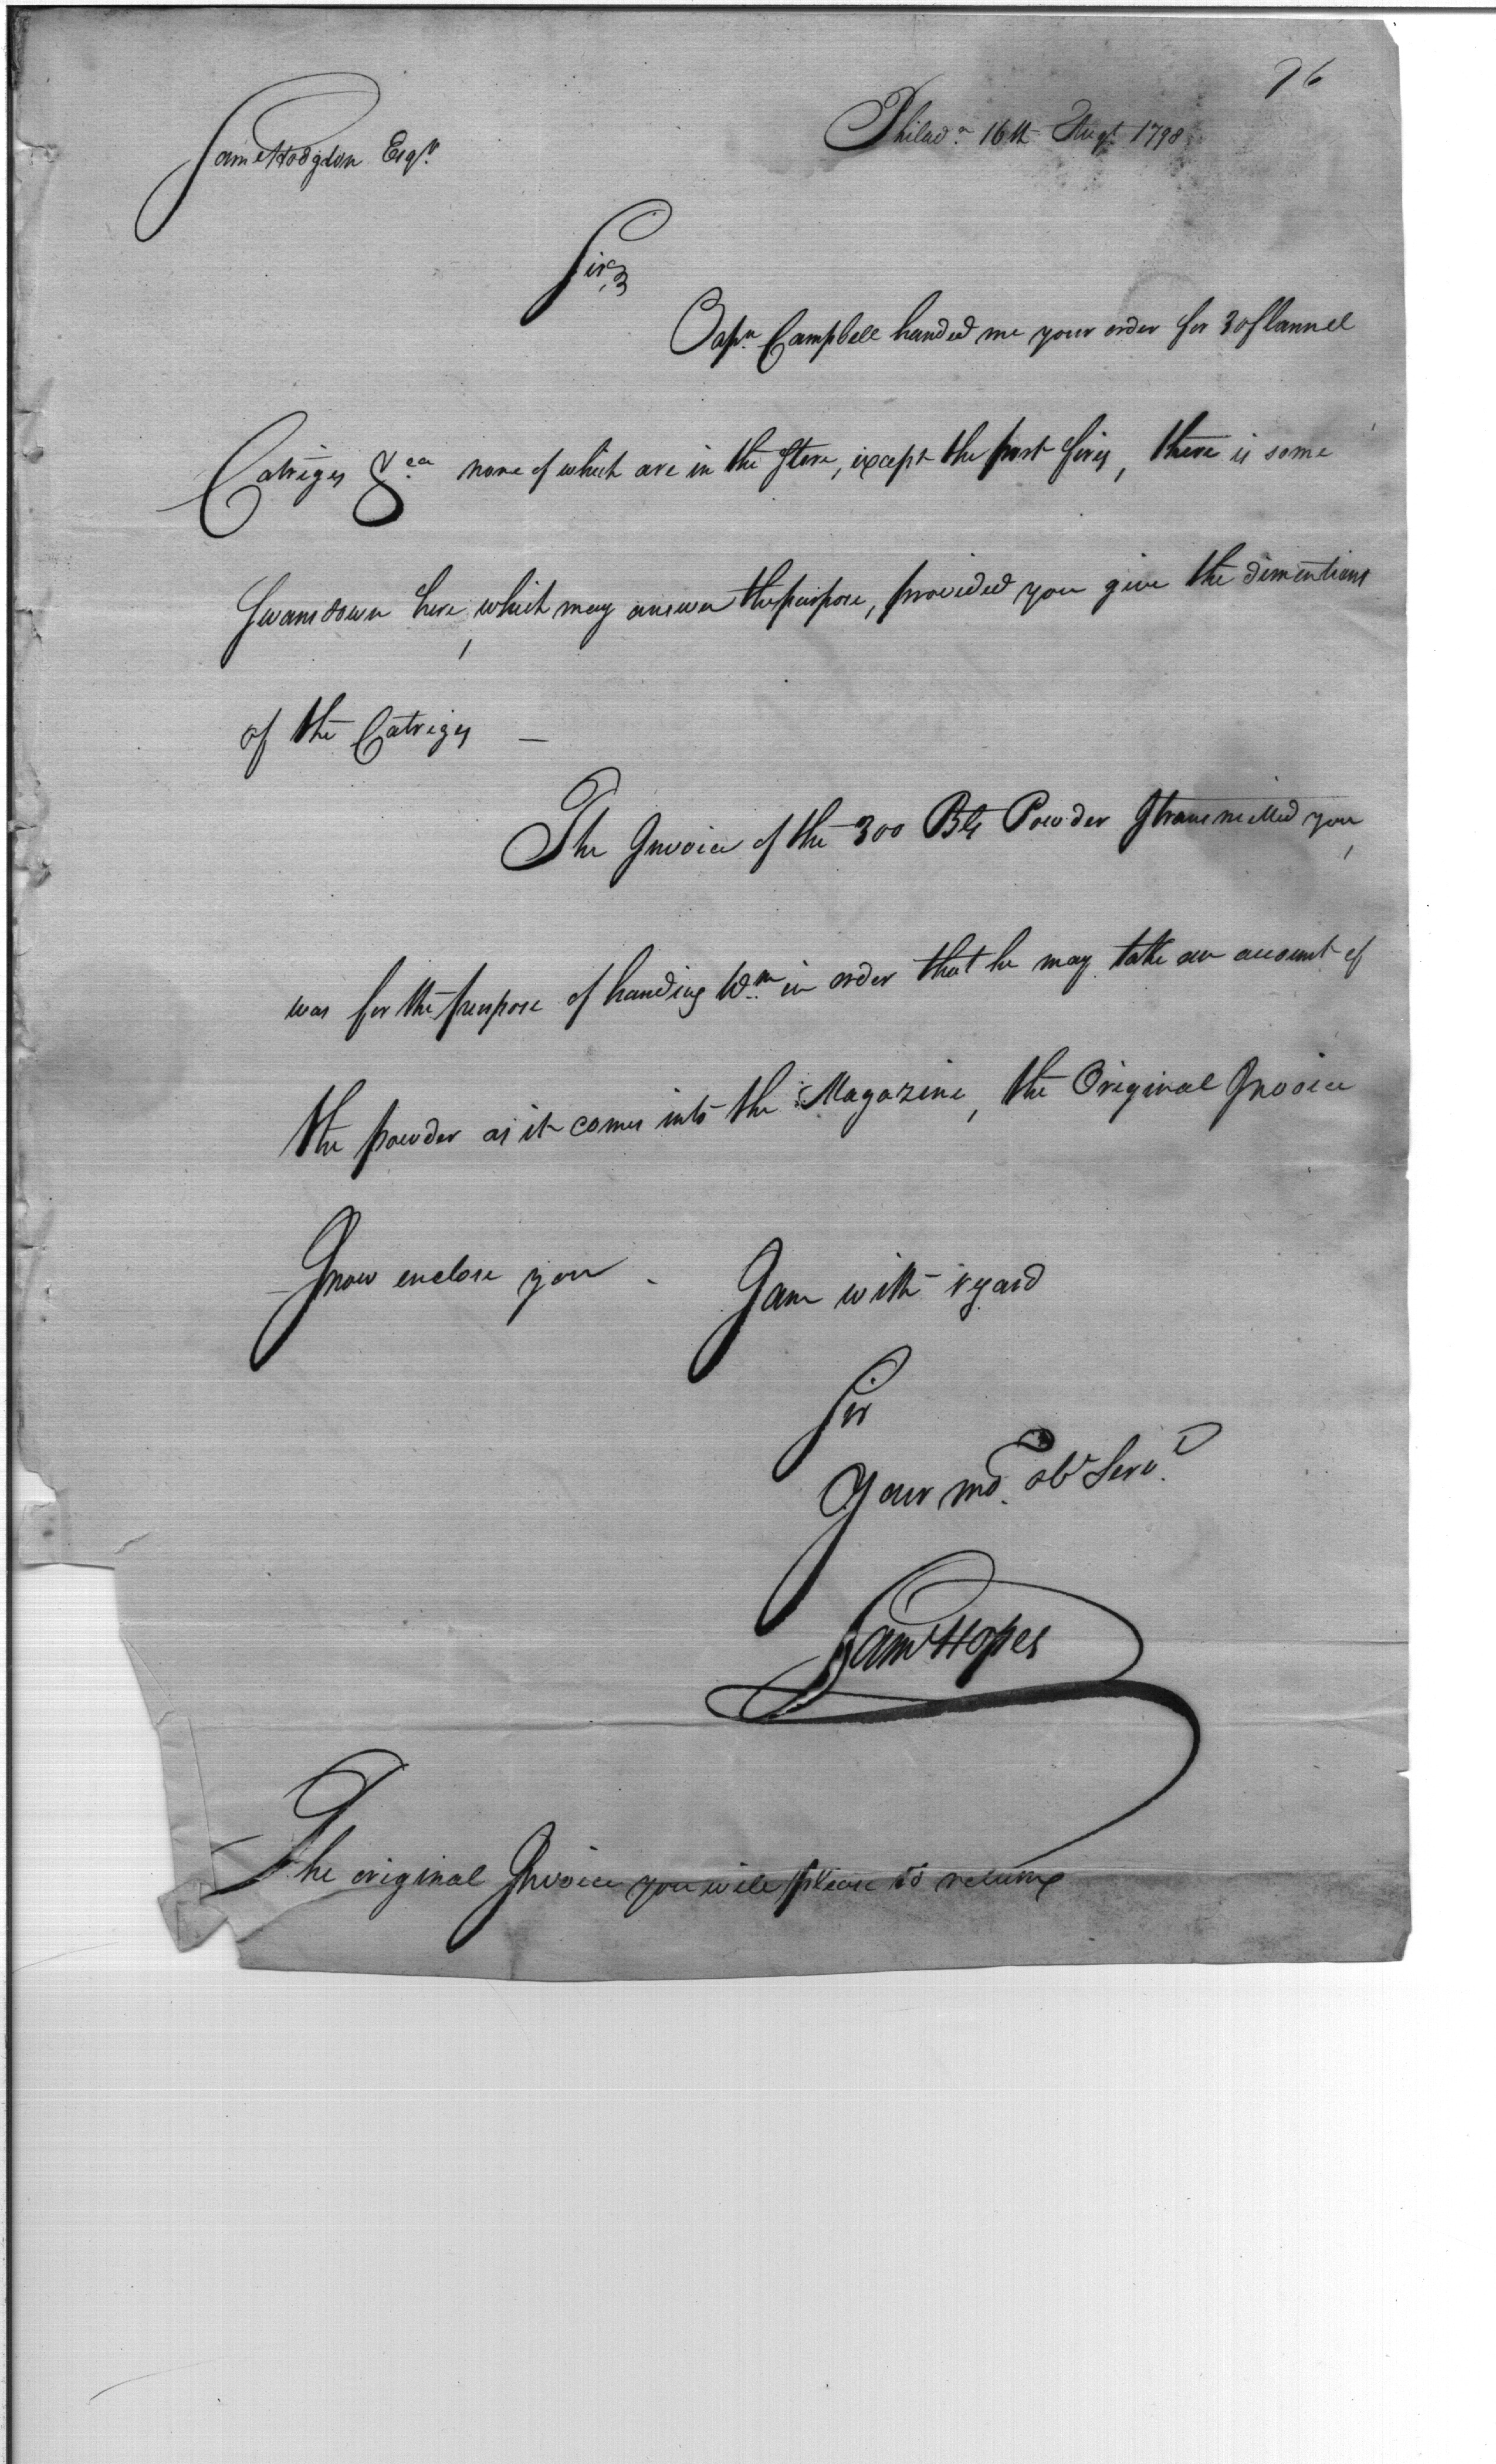 76
Philada 16th Augt 1798
Saml Hodgdon Esqr
Sir,
Capn Campbell handed me your order for 30 flannel
Catriges &ca none of which are in the Store, except the port fires, there is some
Swansdown here, which may answer the purpose, provided you give the dimentions
of the Catriges —
The Invoice of the 300 Bls Powder I transmitted you,
was for the purpose of handing Wm in order that he may take an account of
the powder as it comes into the Magazine, the Original Invoice
I now enclose you - I am with regard
Sir
Your mo. ob Servt
Saml Hopes
The original Invoice you will please to return